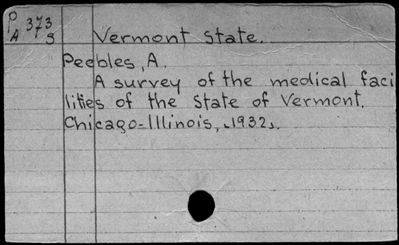 P 373
A S
Vermont State.
Peebles, A.
A survey of the medical faci
lities of the State of Vermont.
Chicago-Illinois, 1932.